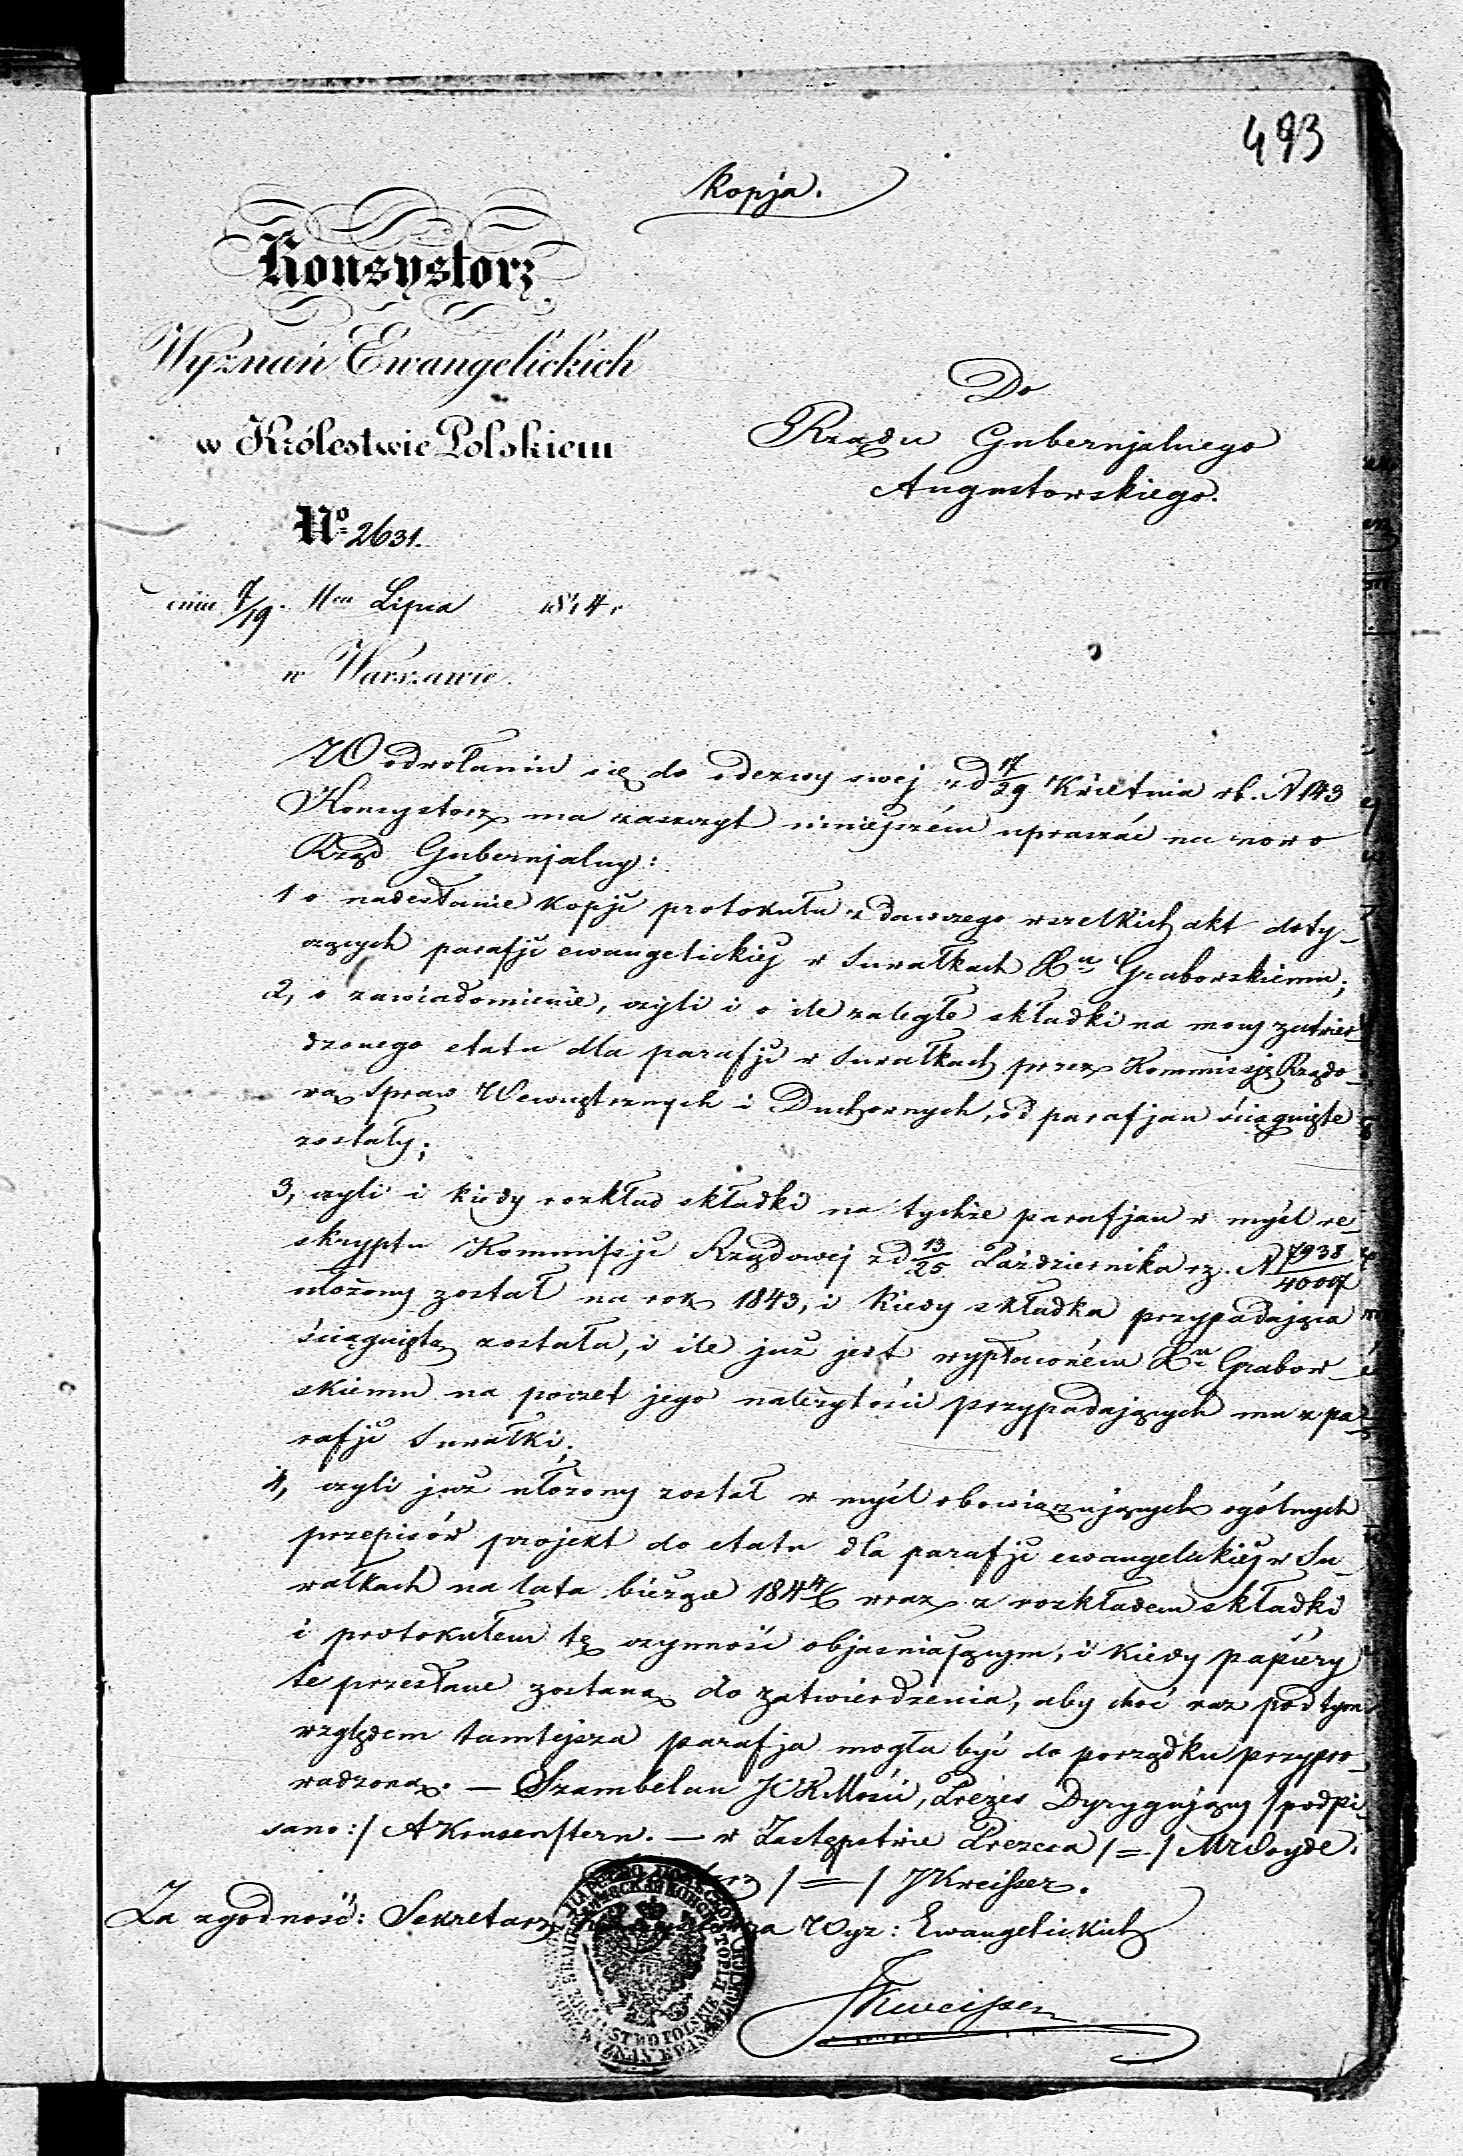 493
Kopja.
Konsystorz
Wyznań Ewangelickich
w Królestwie Polskiem
Nº 2631.
dnia 7/19. Lipca 1844 r.
w Warszawie.
Do
Rządu Gubernjalnego
Augustowskiego.
W odwołaniu się do odezwy swej z d 17/29 Kwietnia rb. N 1143
Konsystorz ma zaszczyt niniejszém upraszać na nowo
Rząd Gubernjalny:
1 o nadesłanie kopji protokułu zdawczego wszelkich akt doty-
czących parafji ewangelickiej w Suwałkach Xu Grabowskiemu;
2, o zawiadomienie, czyli i o ile zaległe składki na mocy zatwier-
dzonego etatu dla parafji w Suwałkach przez Kommissję Rządo-
wą Spraw Wewnętrznych i Duchownych, od parafjan ściągnięte
zostały;
3, czyli i kiedy rozkład składki na tychże parafjan w myśl re-
skryptu Kommissji Rządowej z d 13/25 Października rz. N 7938/40007
ułożony został na rok 1843, i kiedy składka przypadająca
ściągniętą została, i ile już jest wypłaconém Xu Grabow-
skiemu na poczet jego należytości przypadających mu z pa-
rafji Suwałki;
4, czyli już ułożony został w myśl obowiązujących ogólnych
przepisów projekt do etatu dla parafji ewangelickiej w Su-
wałkach na lata bieżące 184 4/6 wraz z rozkładem składki
i protokułem tę czynność objaśniającym, i kiedy papiéry
te przesłane zostaną do zatwierdzenia, aby choć raz pod tym
względem tamtejsza parafja mogła być do porządku przypro-
wadzoną. — Szambelan JCKMości, Prezes Dyrygujący /podpi-
sano:/ AKrusenstern. — w Zastępstwie Prezesa /=/
/=/ JKweisser.
Za zgodność: Sekretarz Konsystorza Wyz: Ewangelickich
JKweisser